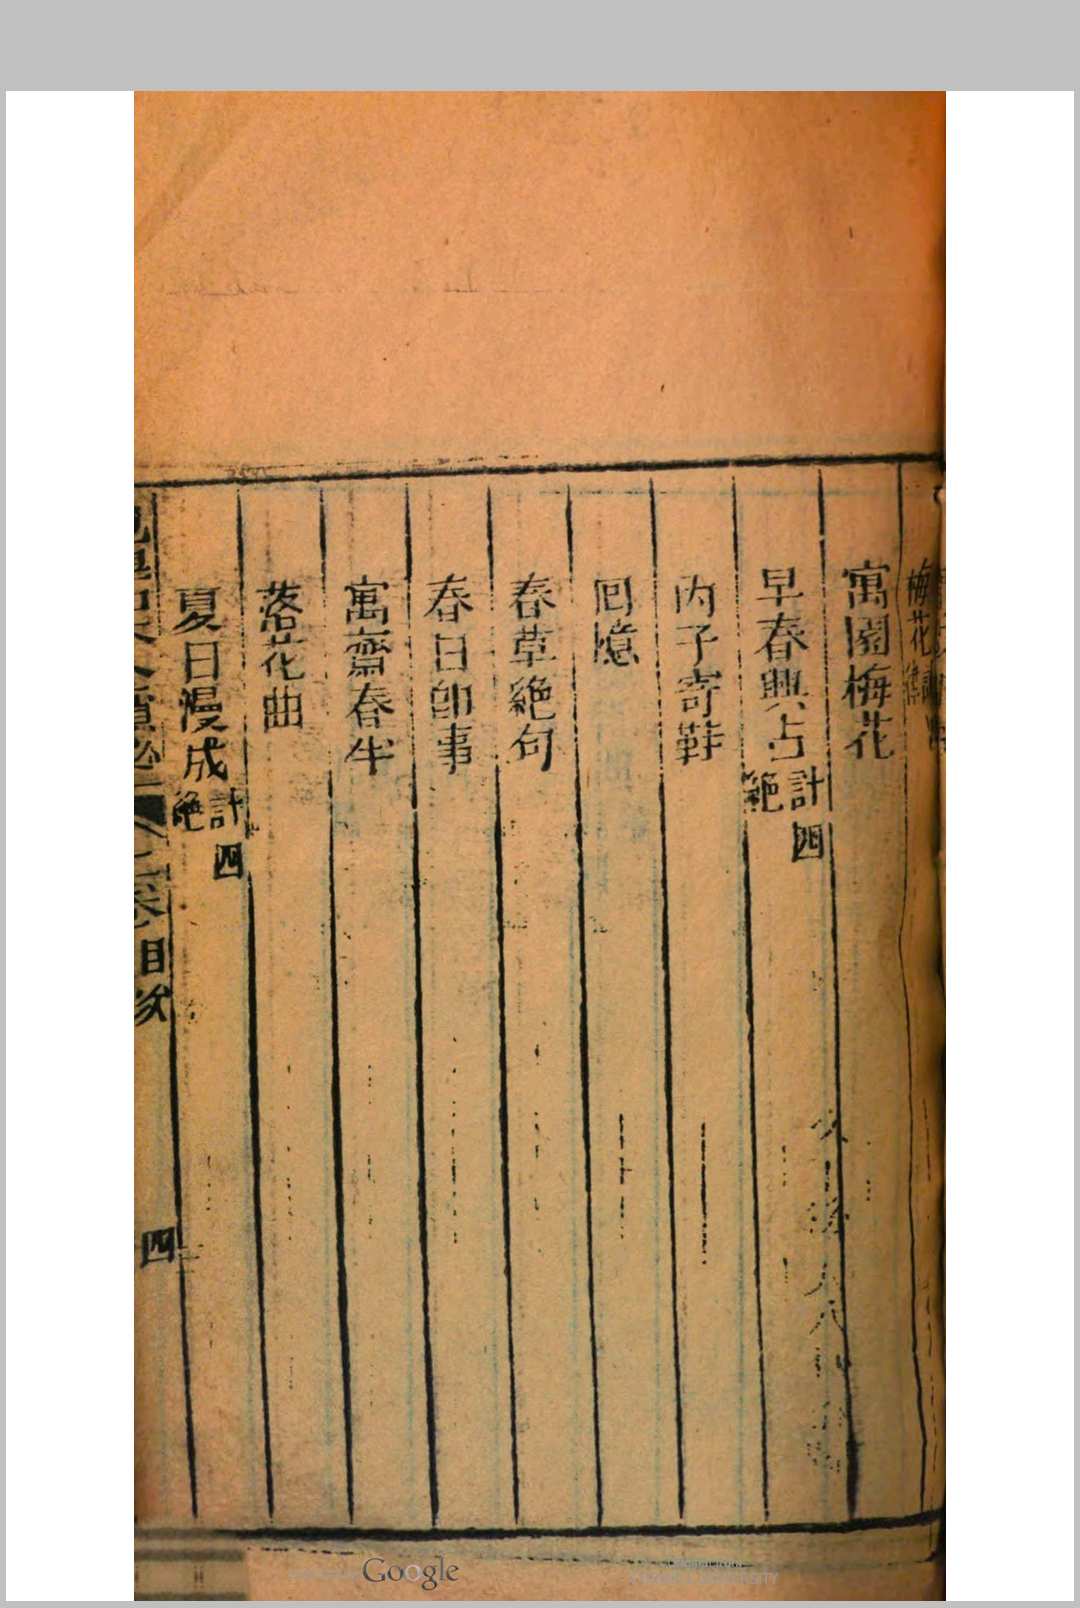 梅花
寓園梅花
早春興占計四絶
内子寄鞋
回憶
春草絶句
春日卽事
寓齋春半
落花曲
夏日漫成計四絶
二卷目次
四
Google